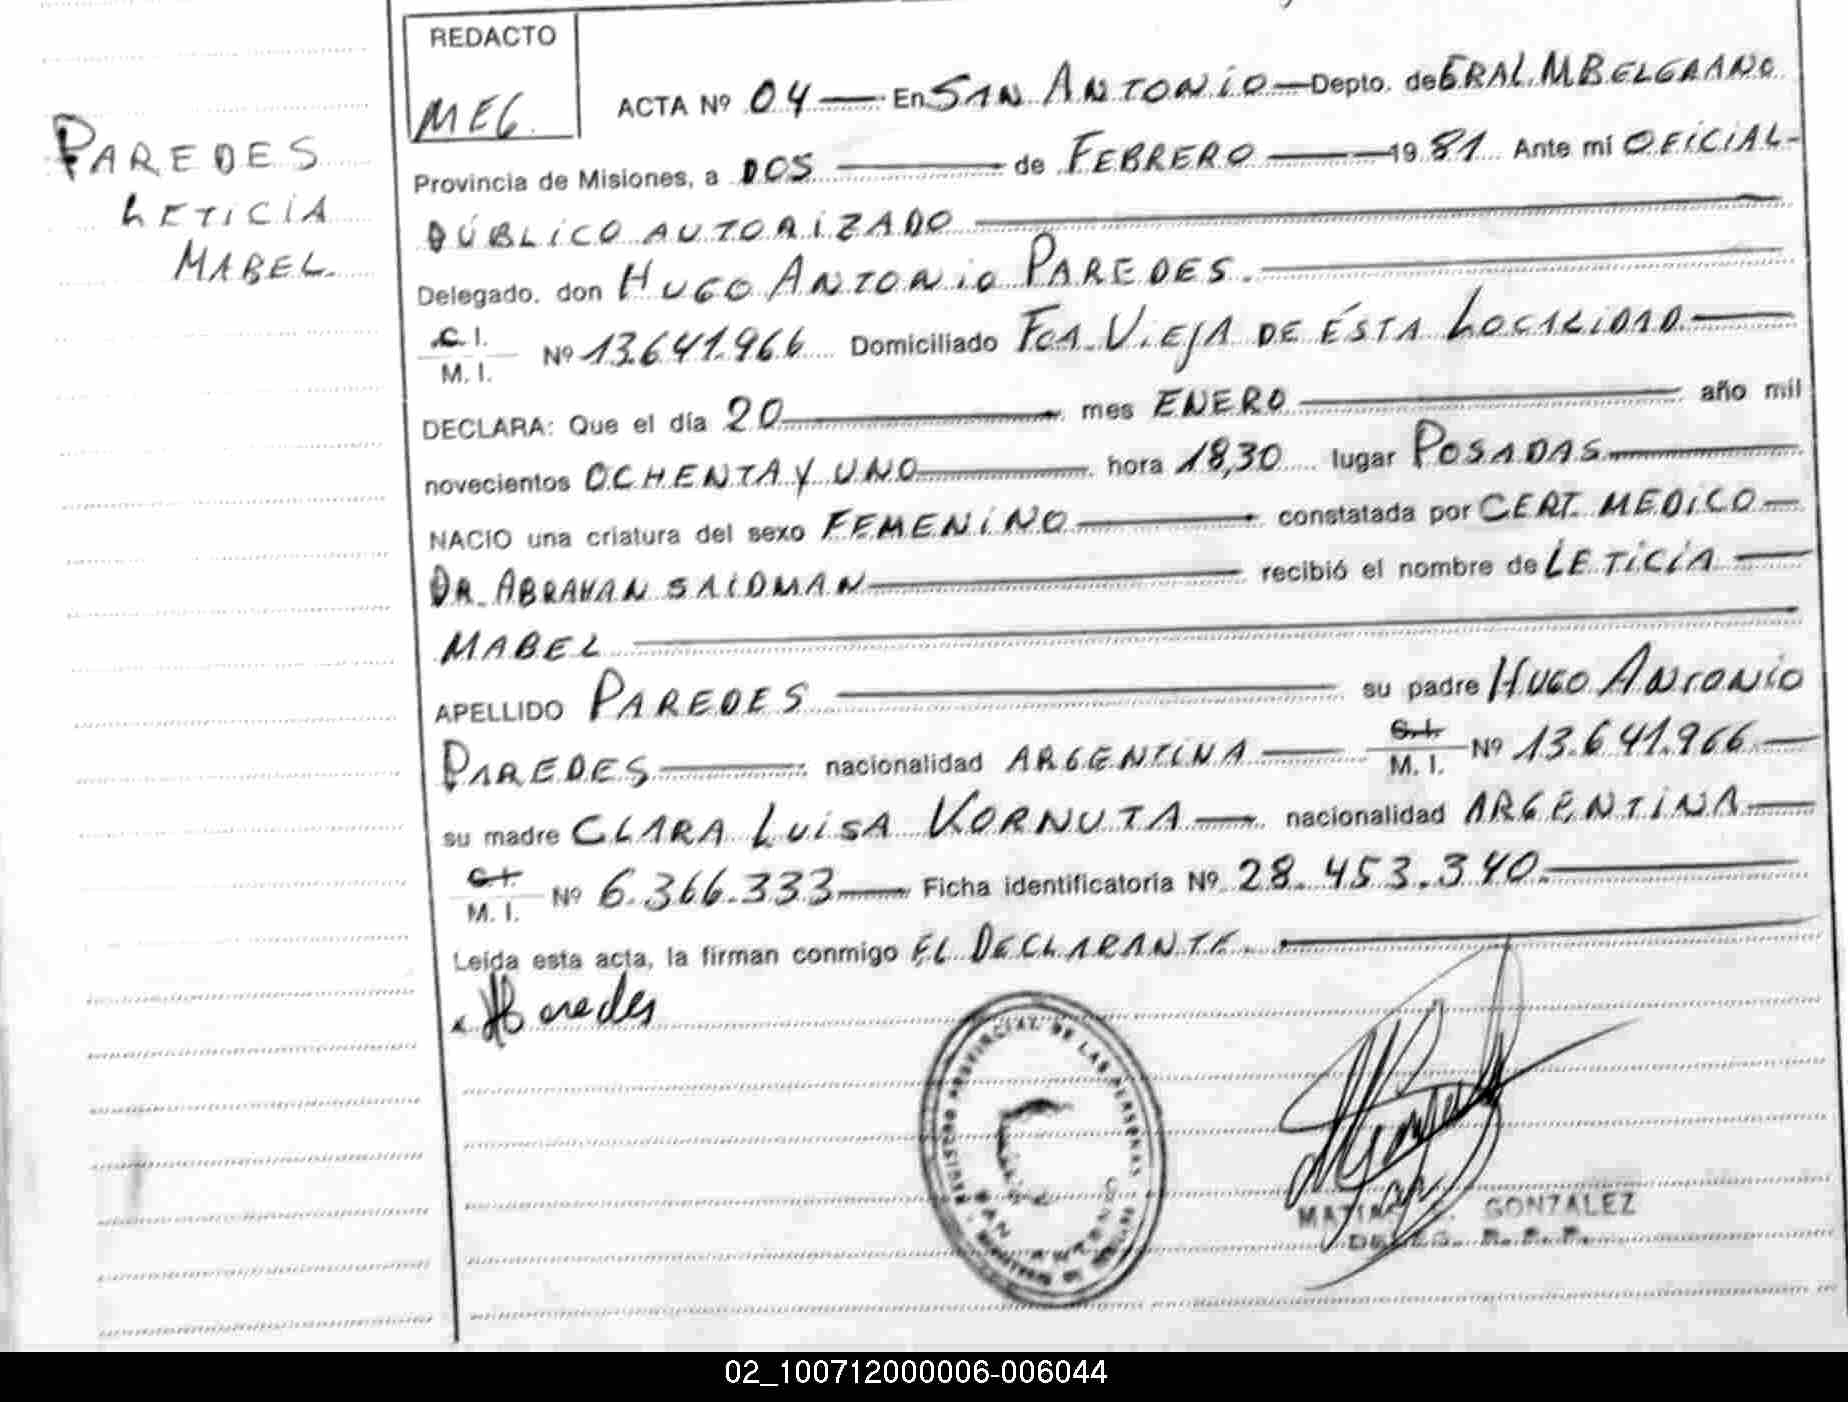 REDACTO
MEG.
PAREDES
LETICIA
MABEL.
ACTA Nº 04 — En SAN ANTONIO — Depto. de GRAL. M BELGRANO
Provincia de Misiones, a DOS — de FEBRERO — 1981 Ante mí OFICIAL-
PÚBLICO AUTORIZADO
Delegado, don HUGO ANTONIO PAREDES.
C.I.
M. I. Nº 13.641.966 Domiciliado FCA. VIEJA DE ÉSTA LOCALIDAD
DECLARA: Que el día 20 — mes ENERO — año mil
novecientos OCHENTA Y UNO — hora 18,30 lugar POSADAS
NACIO una criatura del sexo FEMENINO — constatada por CERT. MEDICO —
DR. ABRAHAN SAIDMAN — recibió el nombre de LETICIA —
MABEL
APELLIDO PAREDES — su padre HUGO ANTONIO
PAREDES — nacionalidad ARGENTINA — C.I.
M. I. Nº 13.641.966 —
su madre CLARA LUISA KORNUTA — nacionalidad ARGENTINA —
C.I.
M. I. Nº 6.366.333 — Ficha identificatoria Nº 28.453.340.
Leída esta acta, la firman conmigo EL DECLARANTE.
x HParedes
REGISTRO PROVINCIAL DE LAS PERSONAS
SAN ANTONIO
GONZALEZ
R. P. P.
02_100712000006-006044